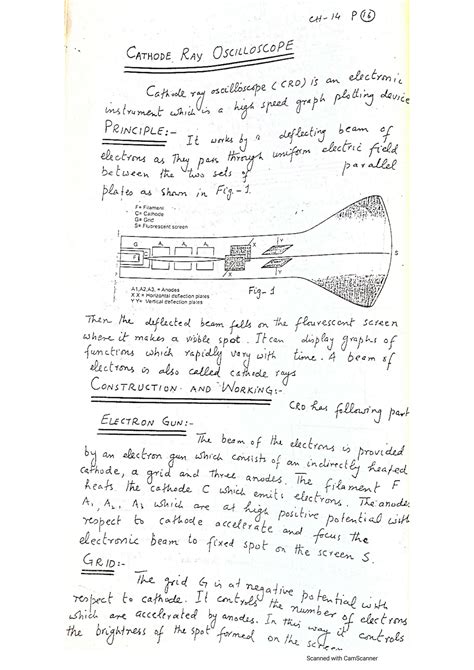 CH-14 P 16
CATHODE RAY OSCILLOSCOPE
Cathode ray oscilloscope (CRO) is an electronic
instrument which is a high speed graph plotting device
PRINCIPLE:-
It works by deflecting beam of
electrons as They pass through uniform electric field
between the two sets of parallel
plates as shown in Fig-1.
F= Filament
C= Cathode
G= Grid
S= Fluorescent screen
G A₁ A₂ A₃ X Y
F
C
X Y
S
A1,A2,A3, = Anodes
X X = Horizontal deflection plates
Y Y= Vertical deflection plates
Fig-1
Then the deflected beam falls on the flourescent screen
where it makes a visible spot. It can display graphs of
functions which rapidly vary with time. A beam of
electrons is also called cathode rays
CONSTRUCTION AND WORKING:-
CRO has following part
ELECTRON GUN:-
The beam of the electrons is provided
by an electron gun which consists of an indirectly heated
cathode, a grid and three anodes. The filament F
heats the cathode C which emits electrons. The anodes
A₁, A₂, A₃ which are at high positive potential with
respect to cathode accelerate and focus the
electronic beam to fixed spot on the screen S.
GRID:-
The grid G is at negative potential with
respect to cathode. It controls the number of electrons
which are accelerated by anodes. In this way it controls
the brightness of the spot formed on the screen
Scanned with CamScanner